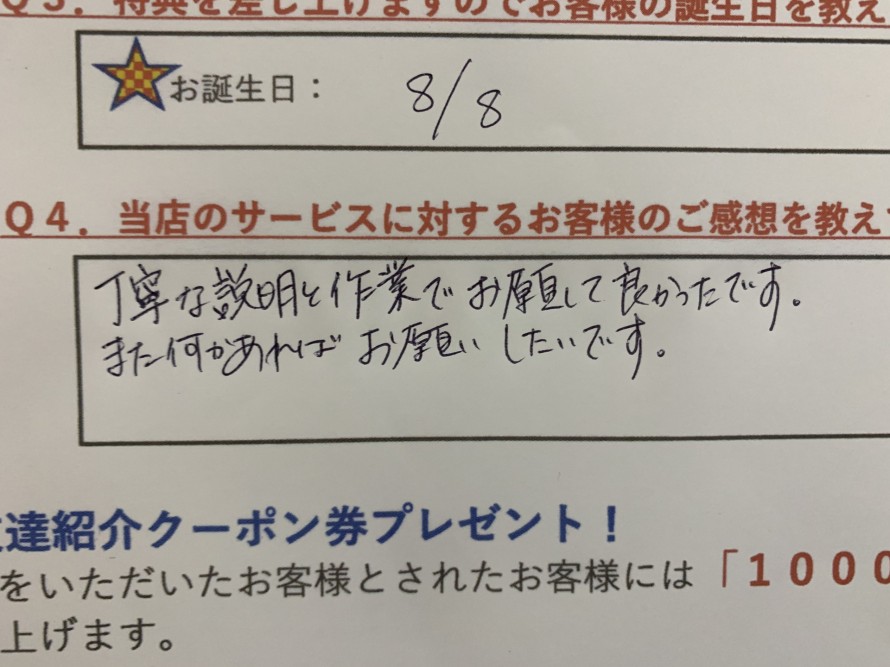 Q3．特典を差し上げますのでお客様の誕生日を教え
お誕生日： 8/8
Q4．当店のサービスに対するお客様のご感想を教え
丁寧な説明と作業でお願いして良かったです。
また何かあればお願いしたいです。
達紹介クーポン券プレゼント！
をいただいたお客様とされたお客様には「1000
上げます。